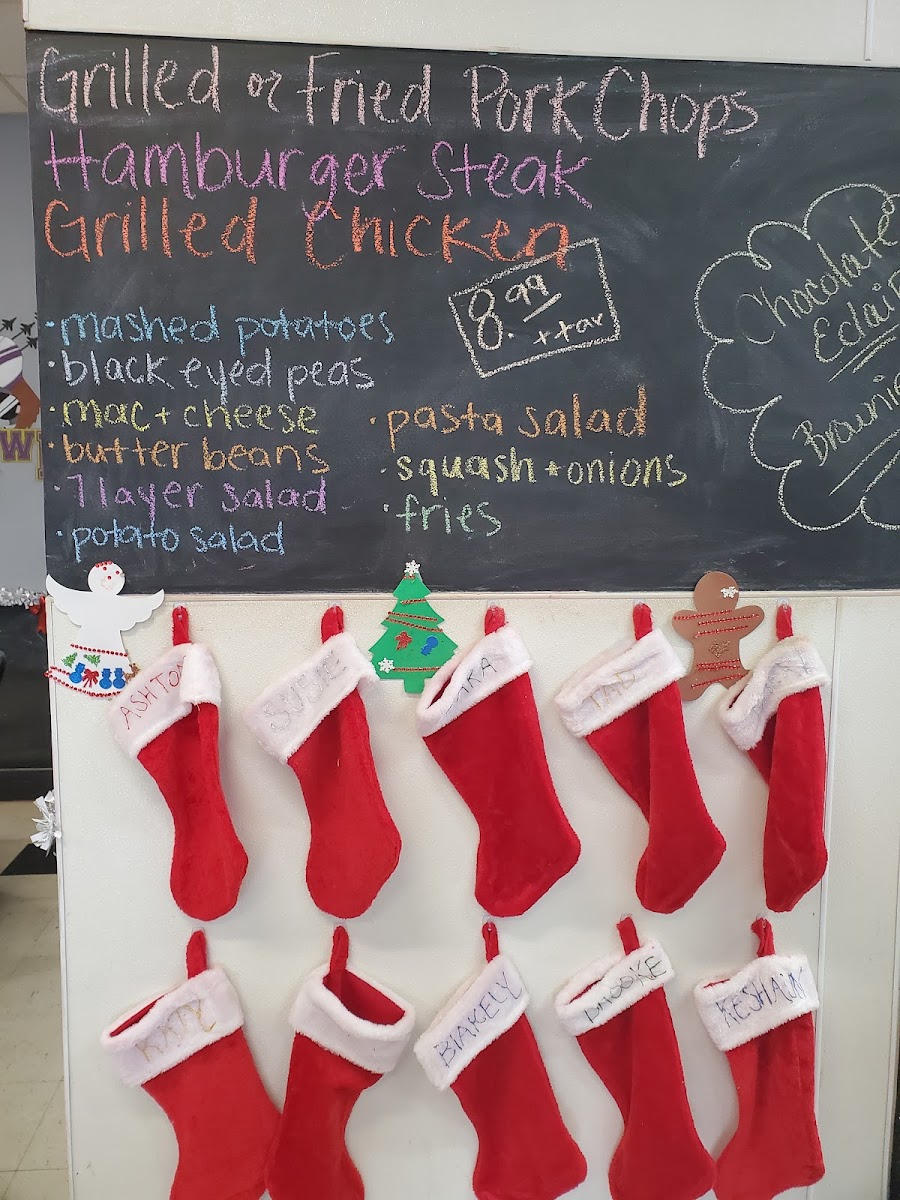 Grilled or Fried Pork Chops
Hamburger Steak
Grilled Chicken
8.99
+tax
• mashed potatoes
• black eyed peas
• mac + cheese
• butter beans
• 7 layer salad
• potato salad
• pasta salad
• squash + onions
• fries
Chocolate
Eclair
Brownie
ASHTON
SUSIE
KATY
BlAKELY
BROOKE
KESHAUN